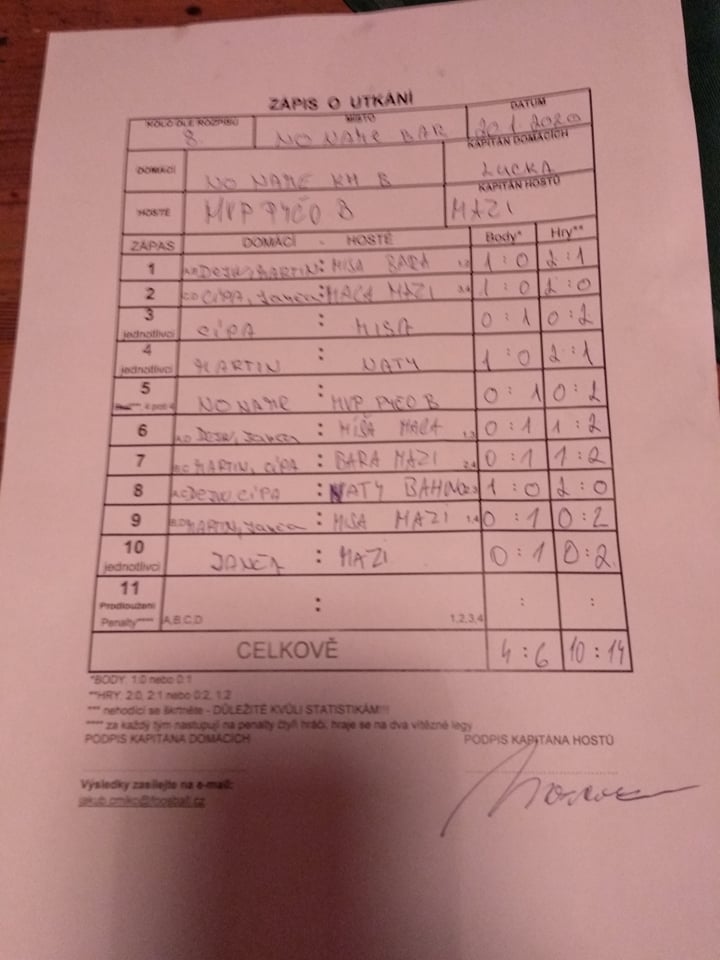 ZÁPIS O UTKÁNÍ
KOLO DLE ROZPISU MÍSTO DATUM
8. NO NAME BAR 20.1.2020
DOMÁCÍ NO NAME KM B KAPITÁN DOMÁCÍCH LUCKA
HOSTÉ MVP PYČO B KAPITÁN HOSTŮ MAZI
ZÁPAS DOMÁCÍ - HOSTÉ Body* Hry**
1 MARTIN : MISA BARA 1:0 2:1
2 CÍPA, Janča : MACA MAZI 3,4 1:0 2:0
3 jednotlivci CÍPA : MISA 0:1 0:2
4 jednotlivci MARTIN : NATY 1:0 2:1
5 NO NAME : MVP PYČO B 0:1 0:2
6 Janča : MÍŠA MACA 1,3 0:1 1:2
7 MARTIN, CÍPA : BARA MAZI 2,4 0:1 1:2
8 CÍPA : NATY 2,3 1:0 2:0
9 MARTIN, Janča : MISA MAZI 1,4 0:1 0:2
10 jednotlivci JANČA : MAZI 0:1 0:2
11 Prodloužení Penalty**** A,B,C,D : 1,2,3,4 : :
CELKOVĚ 4:6 10:14
*BODY: 1:0 nebo 0:1
**HRY: 2:0, 2:1 nebo 0:2, 1:2
*** nehodící se škrtněte - DŮLEŽITÉ KVŮLI STATISTIKÁM!!!
**** za každý tým nastupují na penalty čtyři hráči, hraje se na dva vítězné legy
PODPIS KAPITÁNA DOMÁCÍCH PODPIS KAPITÁNA HOSTŮ
Výsledky zasílejte na e-mail: